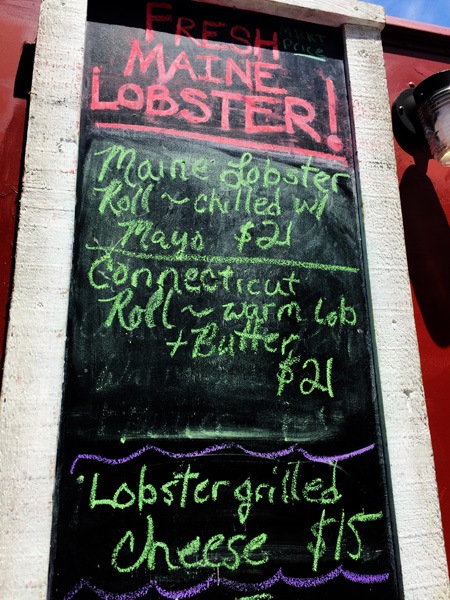 MRKT
Price
FRESH
MAINE
LOBSTER!
Maine Lobster
Roll ~ chilled w/
Mayo $21
Connecticut
Roll ~ warm lob
+ Butter
$21
Lobster grilled
cheese $15